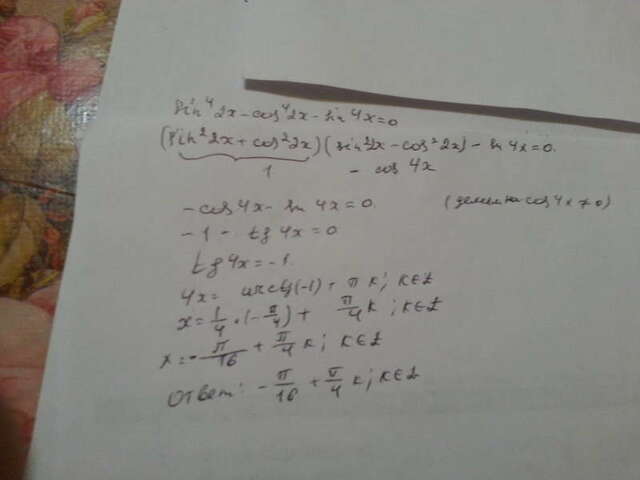 sin⁴ 2x - cos⁴ 2x - sin 4x = 0
(sin² 2x + cos² 2x)(sin² 2x - cos² 2x) - sin 4x = 0.
1 - cos 4x
- cos 4x - sin 4x = 0. (делим на cos 4x ≠ 0)
- 1 - tg 4x = 0
tg 4x = -1.
4x = arctg(-1) + πk; k∈Z
x = 1/4 · (-π/4) + π/4 k; k∈Z
x = - π/16 + π/4 k; k∈Z
Ответ: - π/16 + π/4 k; k∈Z